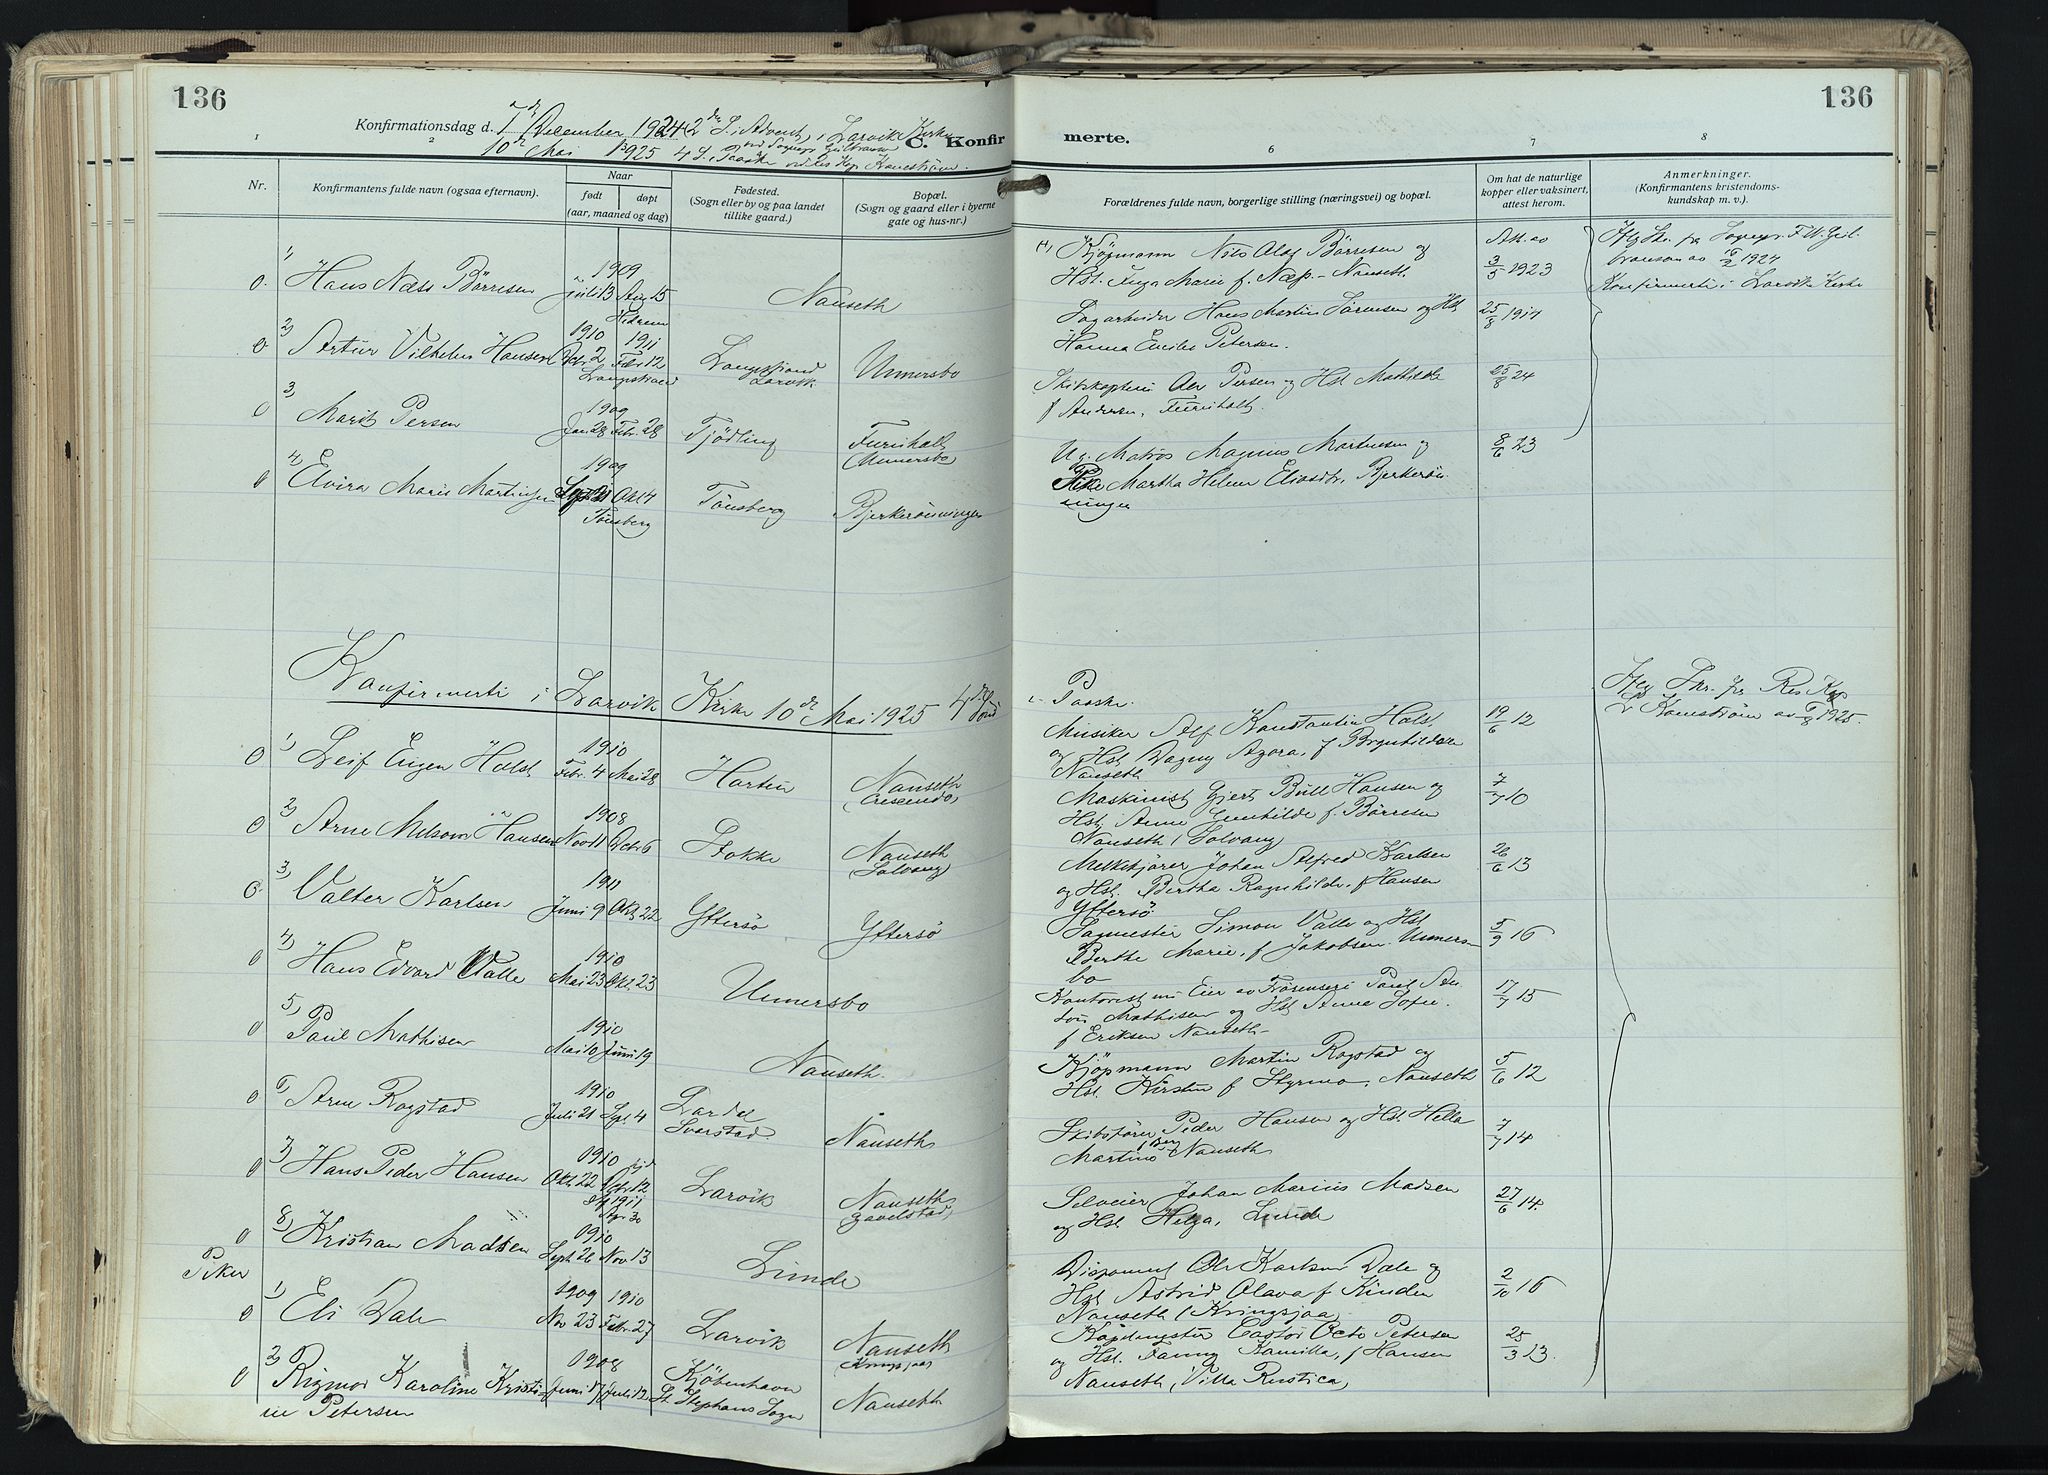 136
Konfirmationsdag d. 7de December 1924 2den S. i Advent, i Larvik Kirke
10de Mai 1925 4 S. e. Paaske ved Res Kap Kanestrøm.
C. Konfir
1
2
Nr.
Konfirmantens fulde navn (ogsaa efternavn).
Naar
født
døpt
(aar, maaned og dag)
Fødested.
(Sogn eller by og paa landet
tillike gaard.)
Bopæl.
(Sogn og gaard eller i byerne
gate og hus-nr.)
0. 1) Hans Næss Børresen 1909 Juli 13 Aug 15 Nanseth
Hedrum
0 2) Artur Vilhelm Hansen 1910 Octr. 2 1911 Febr 12 Langestrand Larvik Unnersbo
Langestrand
0 3) Marit Persen 1909 Jan 28 Febr. 28 Tjødling Furuholt
(Unnersbo)
0 4) Elvira Marie Martinsen 1909 Okt 4 Tønsberg Bjerkerønningen
Tønsberg
Konfirmerte i Larvik Kirke 10de Mai 1925 4de Sønd
0 1) Leif Eugen Holst 1910 Febr. 4 Mai 28 Horten Nanseth
(Crescendo)
0 2) Arne Melsom Hansen 1908 Nov 11 Octr 6 Stokke Nanseth
(Solvang)
0. 3) Valter Karlsen 1911 Juni 9 Okt 22 Yftersø Yftersø
0 4) Hans Edvard Valle 1910 Mai 23 Okt. 23 Unnersbo
0 5) Paul Mathisen 1910 Mai 10 Juni 19 Nanseth.
0 6) Arne Rogstad 1910 Juli 21 Spt. 4 Lardal
Svarstad Nanseth
0 7) Hans Peder Hansen 1910 Okt. 22 Larvik Nanseth
1911
Apr 30
0 8) Kristian Madsen 1910 Sept 26 Nov 13 Linde
Piker
0 1) Eli Dale 1909 Nov 23 1910 Febr. 27 Larvik Nanseth
(Kringsjaa)
0 2) Rigmor Karoline Kristi- 1908 Juni 17 Juli 12 Kjøbenhavn
ne Petersen St. Stephans Sogn Nanseth
136
merte.
6
7
8
Forældrenes fulde navn, borgerlige stilling (næringsvei) og bopæl.
Om hat de naturlige
kopper eller vaksinert,
attest herom.
Anmerkninger.
(Konfirmantens kristendoms-
kundskap m. v.).
Kjøpmann Nils Olaf Børresen og Att. av
Hst. Inga Marie f. Næss. - Nanseth. 3/5 1923
av 16/2 1924
Konfirmerte i Larvik Kirke
Sagarbeider Hans Martin Sørensen og Hst 25/8 1914
Hanna Emilie Petersen.
Skibskaptein Persen og Hst Mathilde 25/8 24
f Andersen, Furuholt.
Ug. Matros Magnus Martinsen og 8/6 23
Pike Martha Helene Eliasdtr. Bjerkerøn-
ningen
e. Paaske.
Musiker Alf Konstantin Holst 19/6 12
og Hst Dagny Azora, f Brynhildsen
Nanseth
Res Kap
Kanestrøm av 1925.
Maskinist Gjert Bull Hansen og 7/7 10
Hst. Anne Gunhilde f. Børresen
Nanseth (Solvang)
Melkekjører Johan Alfred Karlsen 26/6 13
og Hst. Bertha Ragnhilde, f Hansen
Yftersø
Sagmester Simon Valle og Hst 5/9 16
Berthe Marie, f Jakobsen. Unners-
bo
Kontorist nu Eier av Paul An- 17/7 15
ton Mathisen og Hst Anna Sofie
f Eriksen Nanseth -
Kjöpmann Martin Rogstad og 5/6 12
Hst. Kirsten f Styrmo, Nanseth
Skibsfører Peder Hansen og Hst. Hella 7/7 14
Martine Berg Nanseth
Selveier Johan Marius Madsen 27/6 14.
og Hst. Helga, Linde
Disponent Ole Karlsen Dale og 2/10 16
Hst Astrid Olava f Kinden
Nanseth (Kringsjaa)
Castor Octo Petersen 25/3 13.
og Hst. Fanny Kamilla, f Hansen
Nanseth, (Villa Rustica)